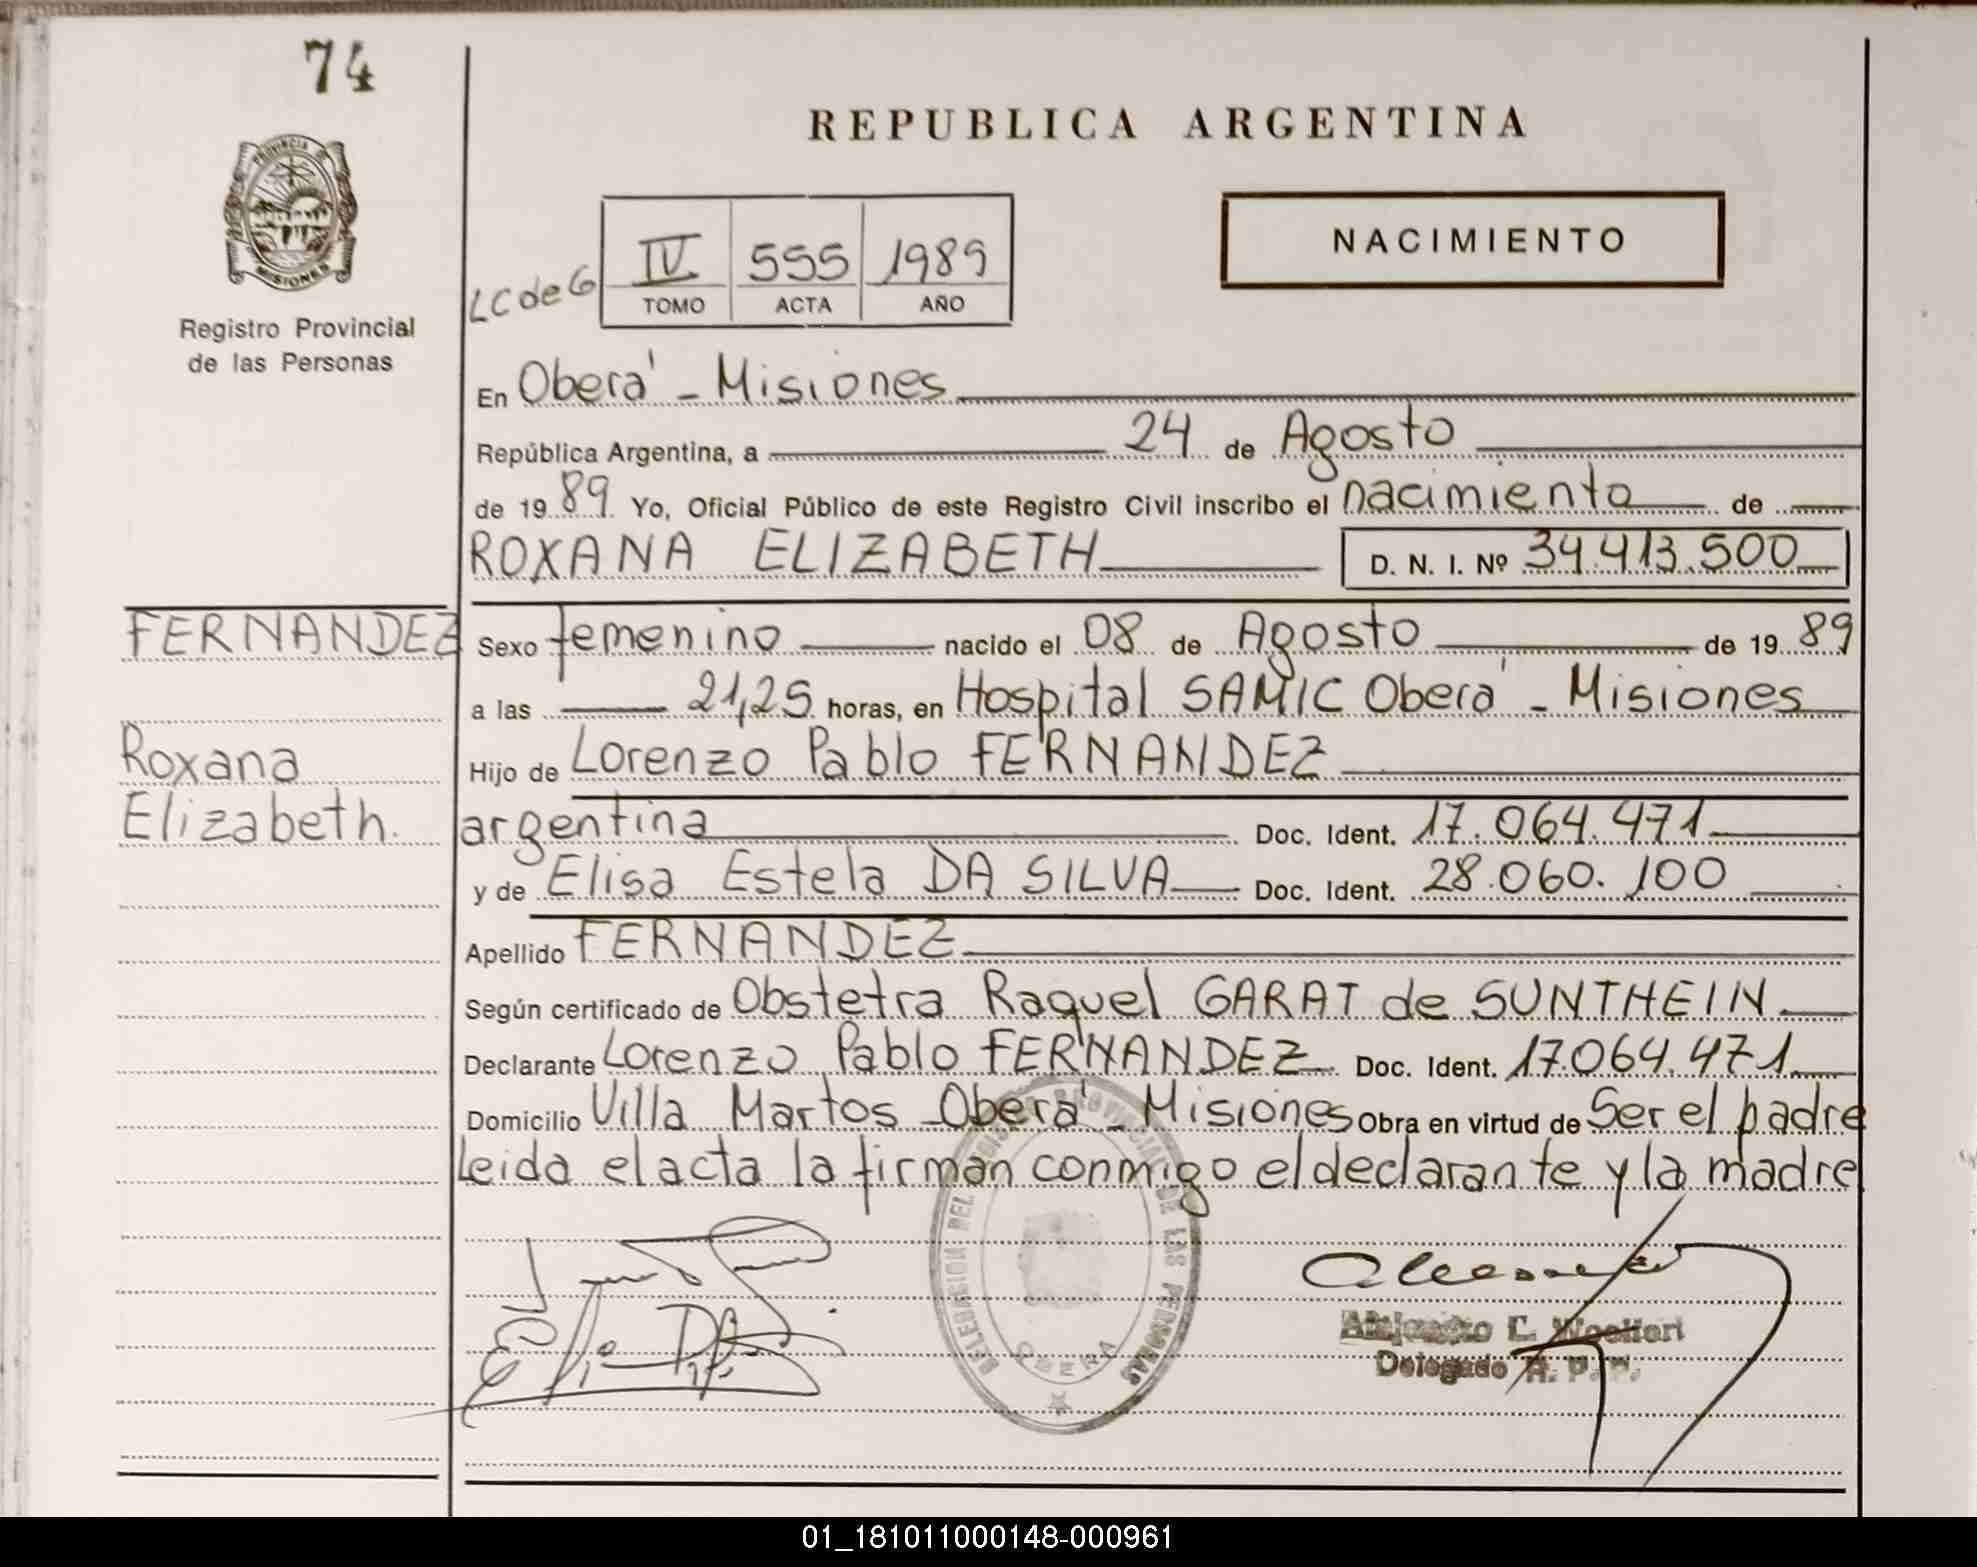 74
REPUBLICA ARGENTINA
PROVINCIA DE
MISIONES
Registro Provincial
de las Personas
NACIMIENTO
LC de G
IV 555 1989
TOMO ACTA AÑO
En Oberá - Misiones
República Argentina, a 24 de Agosto
de 1989 Yo, Oficial Público de este Registro Civil inscribo el nacimiento de
ROXANA ELIZABETH D. N. I. Nº 34.413.500
FERNANDEZ
Roxana
Elizabeth.
Sexo femenino nacido el 08 de Agosto de 1989
a las 21,25 horas, en Hospital SAMIC Oberá - Misiones
Hijo de Lorenzo Pablo FERNANDEZ
argentina Doc. Ident. 17.064.471
y de Elisa Estela DA SILVA Doc. Ident. 28.060.100
Apellido FERNANDEZ
Según certificado de Obstetra Raquel GARAT de SUNTHEIN
Declarante Lorenzo Pablo FERNANDEZ Doc. Ident. 17.064.471
Domicilio Villa Martos Oberá - Misiones Obra en virtud de Ser el padre
Leida el acta la firman conmigo el declarante y la madre
DELEGACION DEL REGISTRO PROVINCIAL DE LAS PERSONAS
OBERA
Delegado R. P. P.
01_181011000148-000961